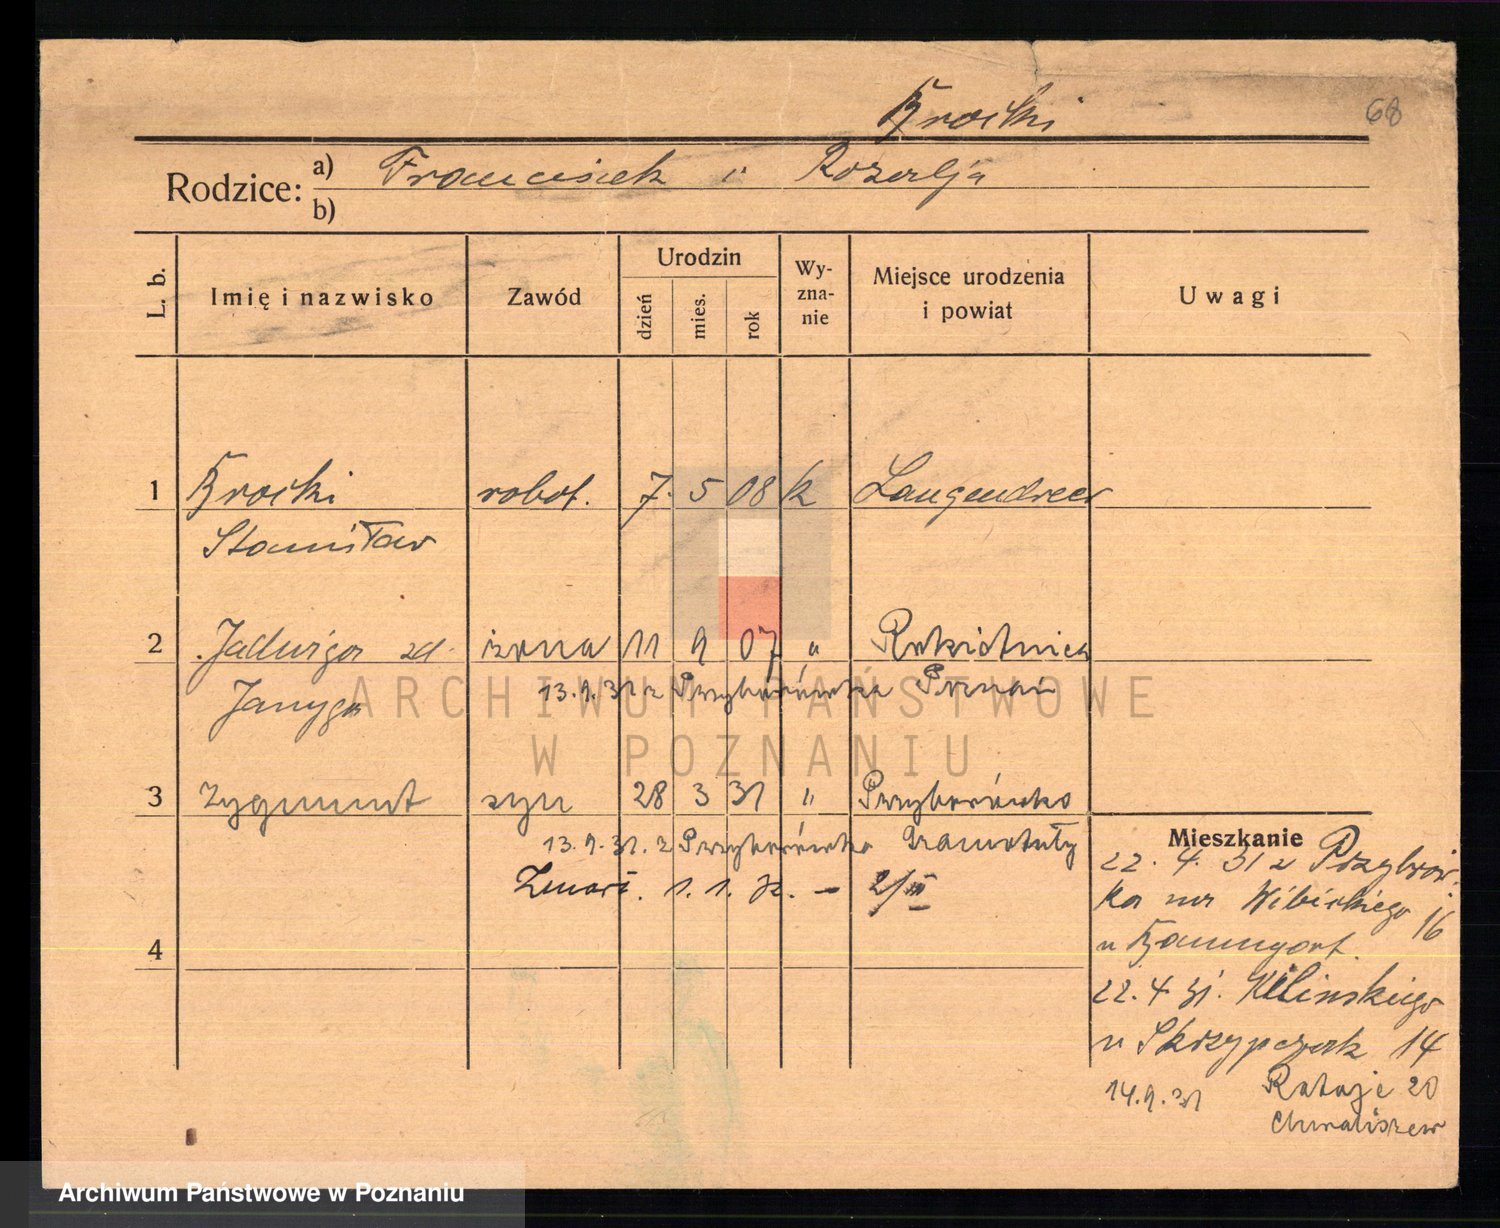 Brocki
68
Rodzice: a) Franciszek i Rozalja
b)
L. b.
Imię i nazwisko
Zawód
Urodzin
dzień
mies.
rok
Wy-
zna-
nie
Miejsce urodzenia
i powiat
Uwagi
1 Brocki robot. 7. 5 08 k Langendreer
Stanisław
2 Jadwiga zd. żona 11 9 07 " Rokietnica
Janyga 13.9.31 z Przyborówka Poznań
3 Zygmunt syn 28 3 31 " Przyborówko
13.9.31. z Przyborówka Szamotuły
Zmarł. 1. 1. 32. – 2/III
4
Mieszkanie
22. 4. 31 z Przybrów-
ka na Wibickiego 16
u Baumgart.
22. 4 31. Kilinskiego
u Skrzypczak 14
14.9.31 Rataje 20
Chwaliszew
ARCHIWUM PAŃSTWOWE
W POZNANIU
Archiwum Państwowe w Poznaniu